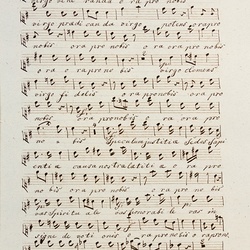 virgo vene randa o ra pro nobis
virgo prædi canda virgo potens o ra pro
nobis ora pro nobis o ra ora pro nobis
o ra o ra pro no bis virgo clemens
virgo fi delis o ra o ra pronobis ora pro
nobis ora pronobis ora ora pro
no bis Speculum justitiæ Sedes Sapi
entiæ causa nostræ lætiti æ o ra pro
no bis ora pro nobis o ra pro no bis
vas Spiritu a le vas honorabi le vas in
signe de voti onis o ra pro nobis o ra pro no